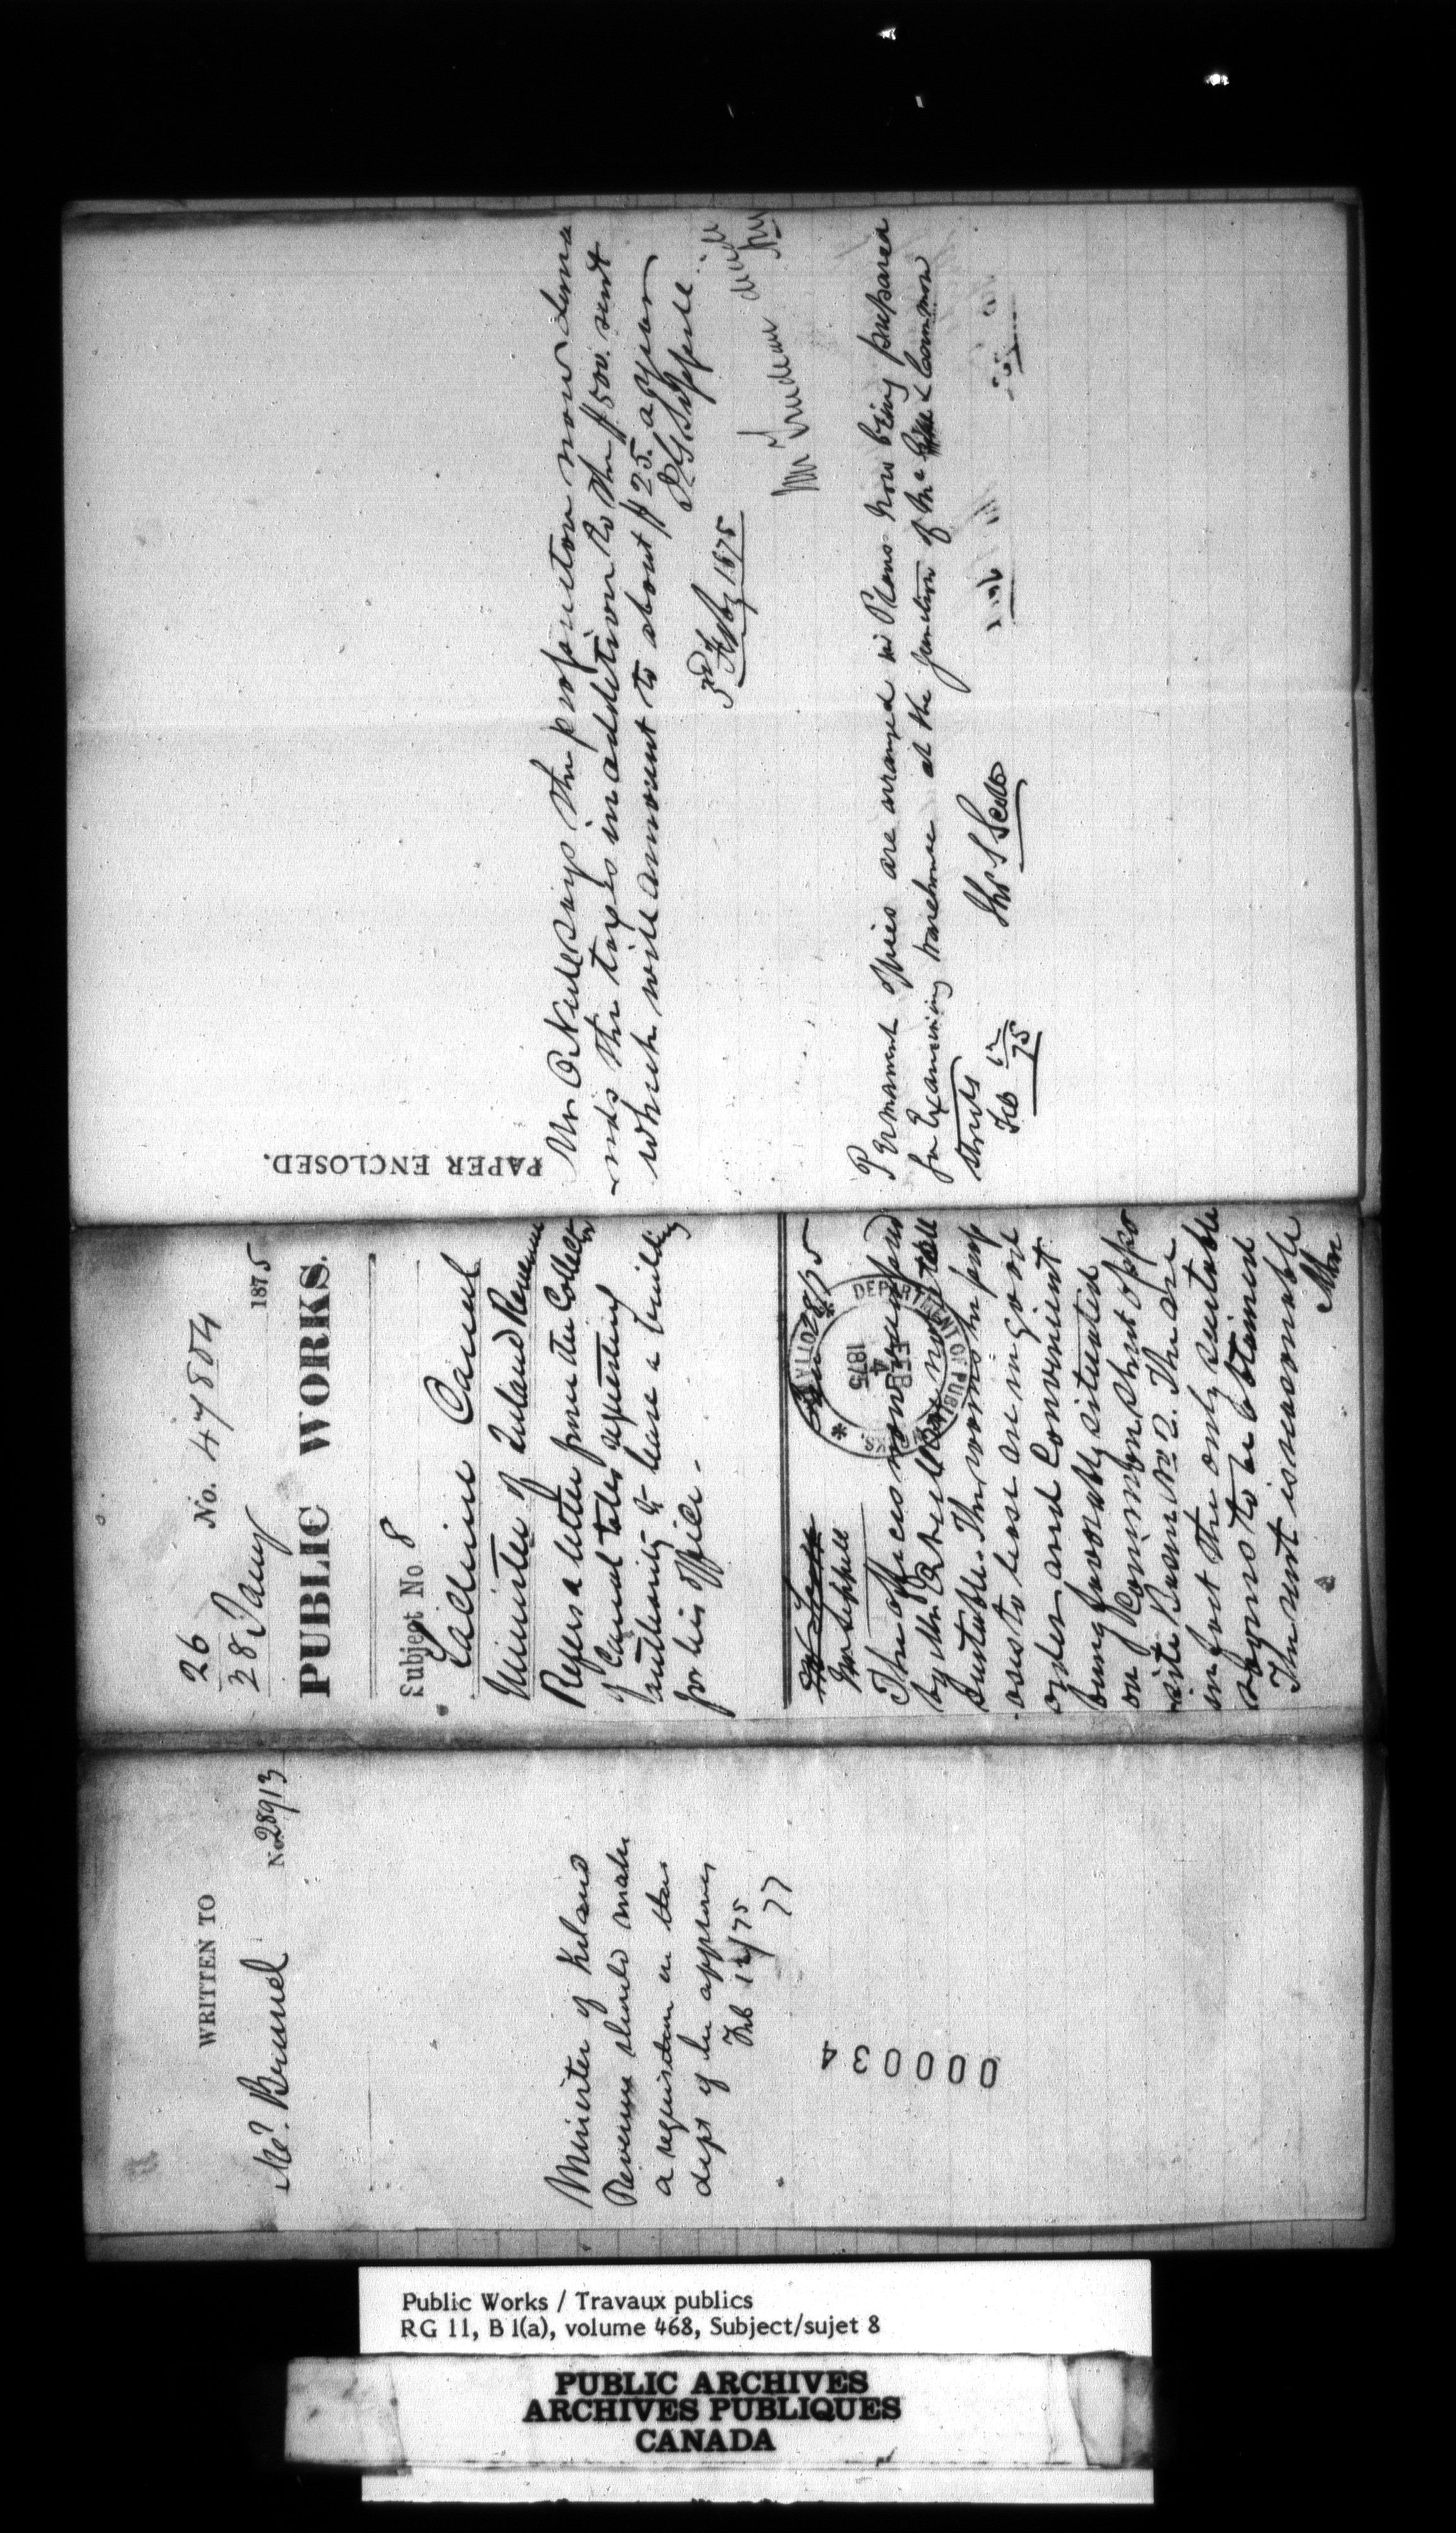 26
28 Jany
No. 47854
1875
PUBLIC WORKS.
Subject No. 8
Lachine Canal
Minister of Inland Revenue
Refers a letter from the Collector
of Canal tolls requesting
authority to lease a building
for his office.
Mr Sippell
DEPARTMENT OF PUBLIC WORKS. OTTAWA
FEB
4
1875
The offices now occupied
by Mr are not at all
suitable. The rooms he prop
-oses to lease are in good
order and convenient
being favorably situated
on Common Street oppo
-site Basin No 2. They are
in fact the only suitable
rooms to be obtained
The rent is reasonable
Mr O'Neil says the proprietor now dema
-nds the taxes in addition to the $500. rent
which will amount to about $25. a year
J G Sippell
3rd Feby 1875
Mr Trudeau
Permanent offices are arranged in Plans now being prepared
for Examining Warehouse at the junction of McGill & Common
Streets
Thos S Scott
Feb 12/75
PAPER ENCLOSED.
WRITTEN TO
Mr. Brunel
No. 28913
Minister of Inland
Revenue should make
a requisition on this
dept if he approves
Feb 12/75
000034
Public Works / Travaux publics
RG 11, B 1(a), volume 468, Subject/sujet 8
PUBLIC ARCHIVES
ARCHIVES PUBLIQUES
CANADA